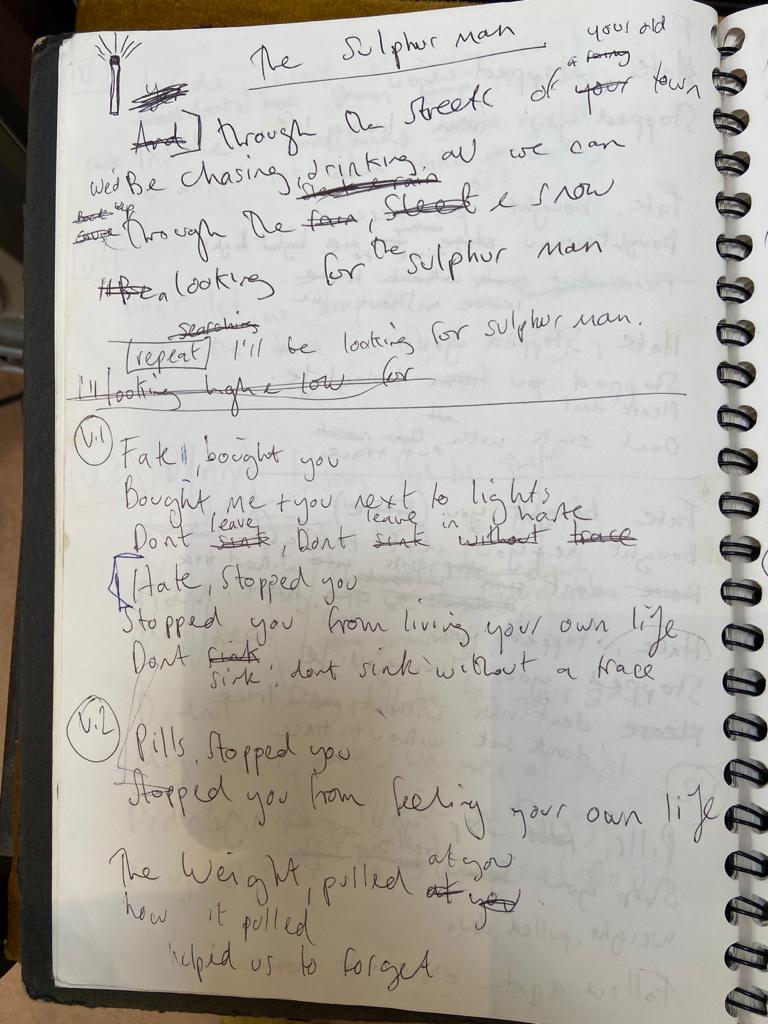 The Sulphur Man
your old
a fairy
And] through the streets of your town
We'd Be chasing, drinking, all we can
sleet & rain
Back up
through the rain, sleet & snow
Be a looking for the sulphur man
searching
[repeat] I'll be looking for sulphur man.
I'll looking high & low for
V.1
Fate, bought you
Bought me + you next to lights
leave leave in haste
Dont sink, Dont sink without trace
Hate, Stopped you
Stopped you from living your own life
Dont sink
sink, dont sink without a trace
V.2
Pills, Stopped you
Stopped you from feeling your own life
The Weight, pulled at you
at you
how it pulled
helped us to forget